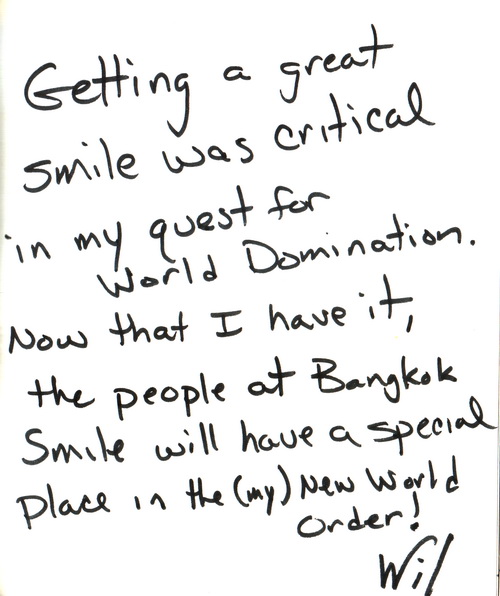 Getting a great
smile was critical
in my quest for
World Domination.
Now that I have it,
the people at Bangkok
Smile will have a special
place in the (my) New World
Order!
Wil